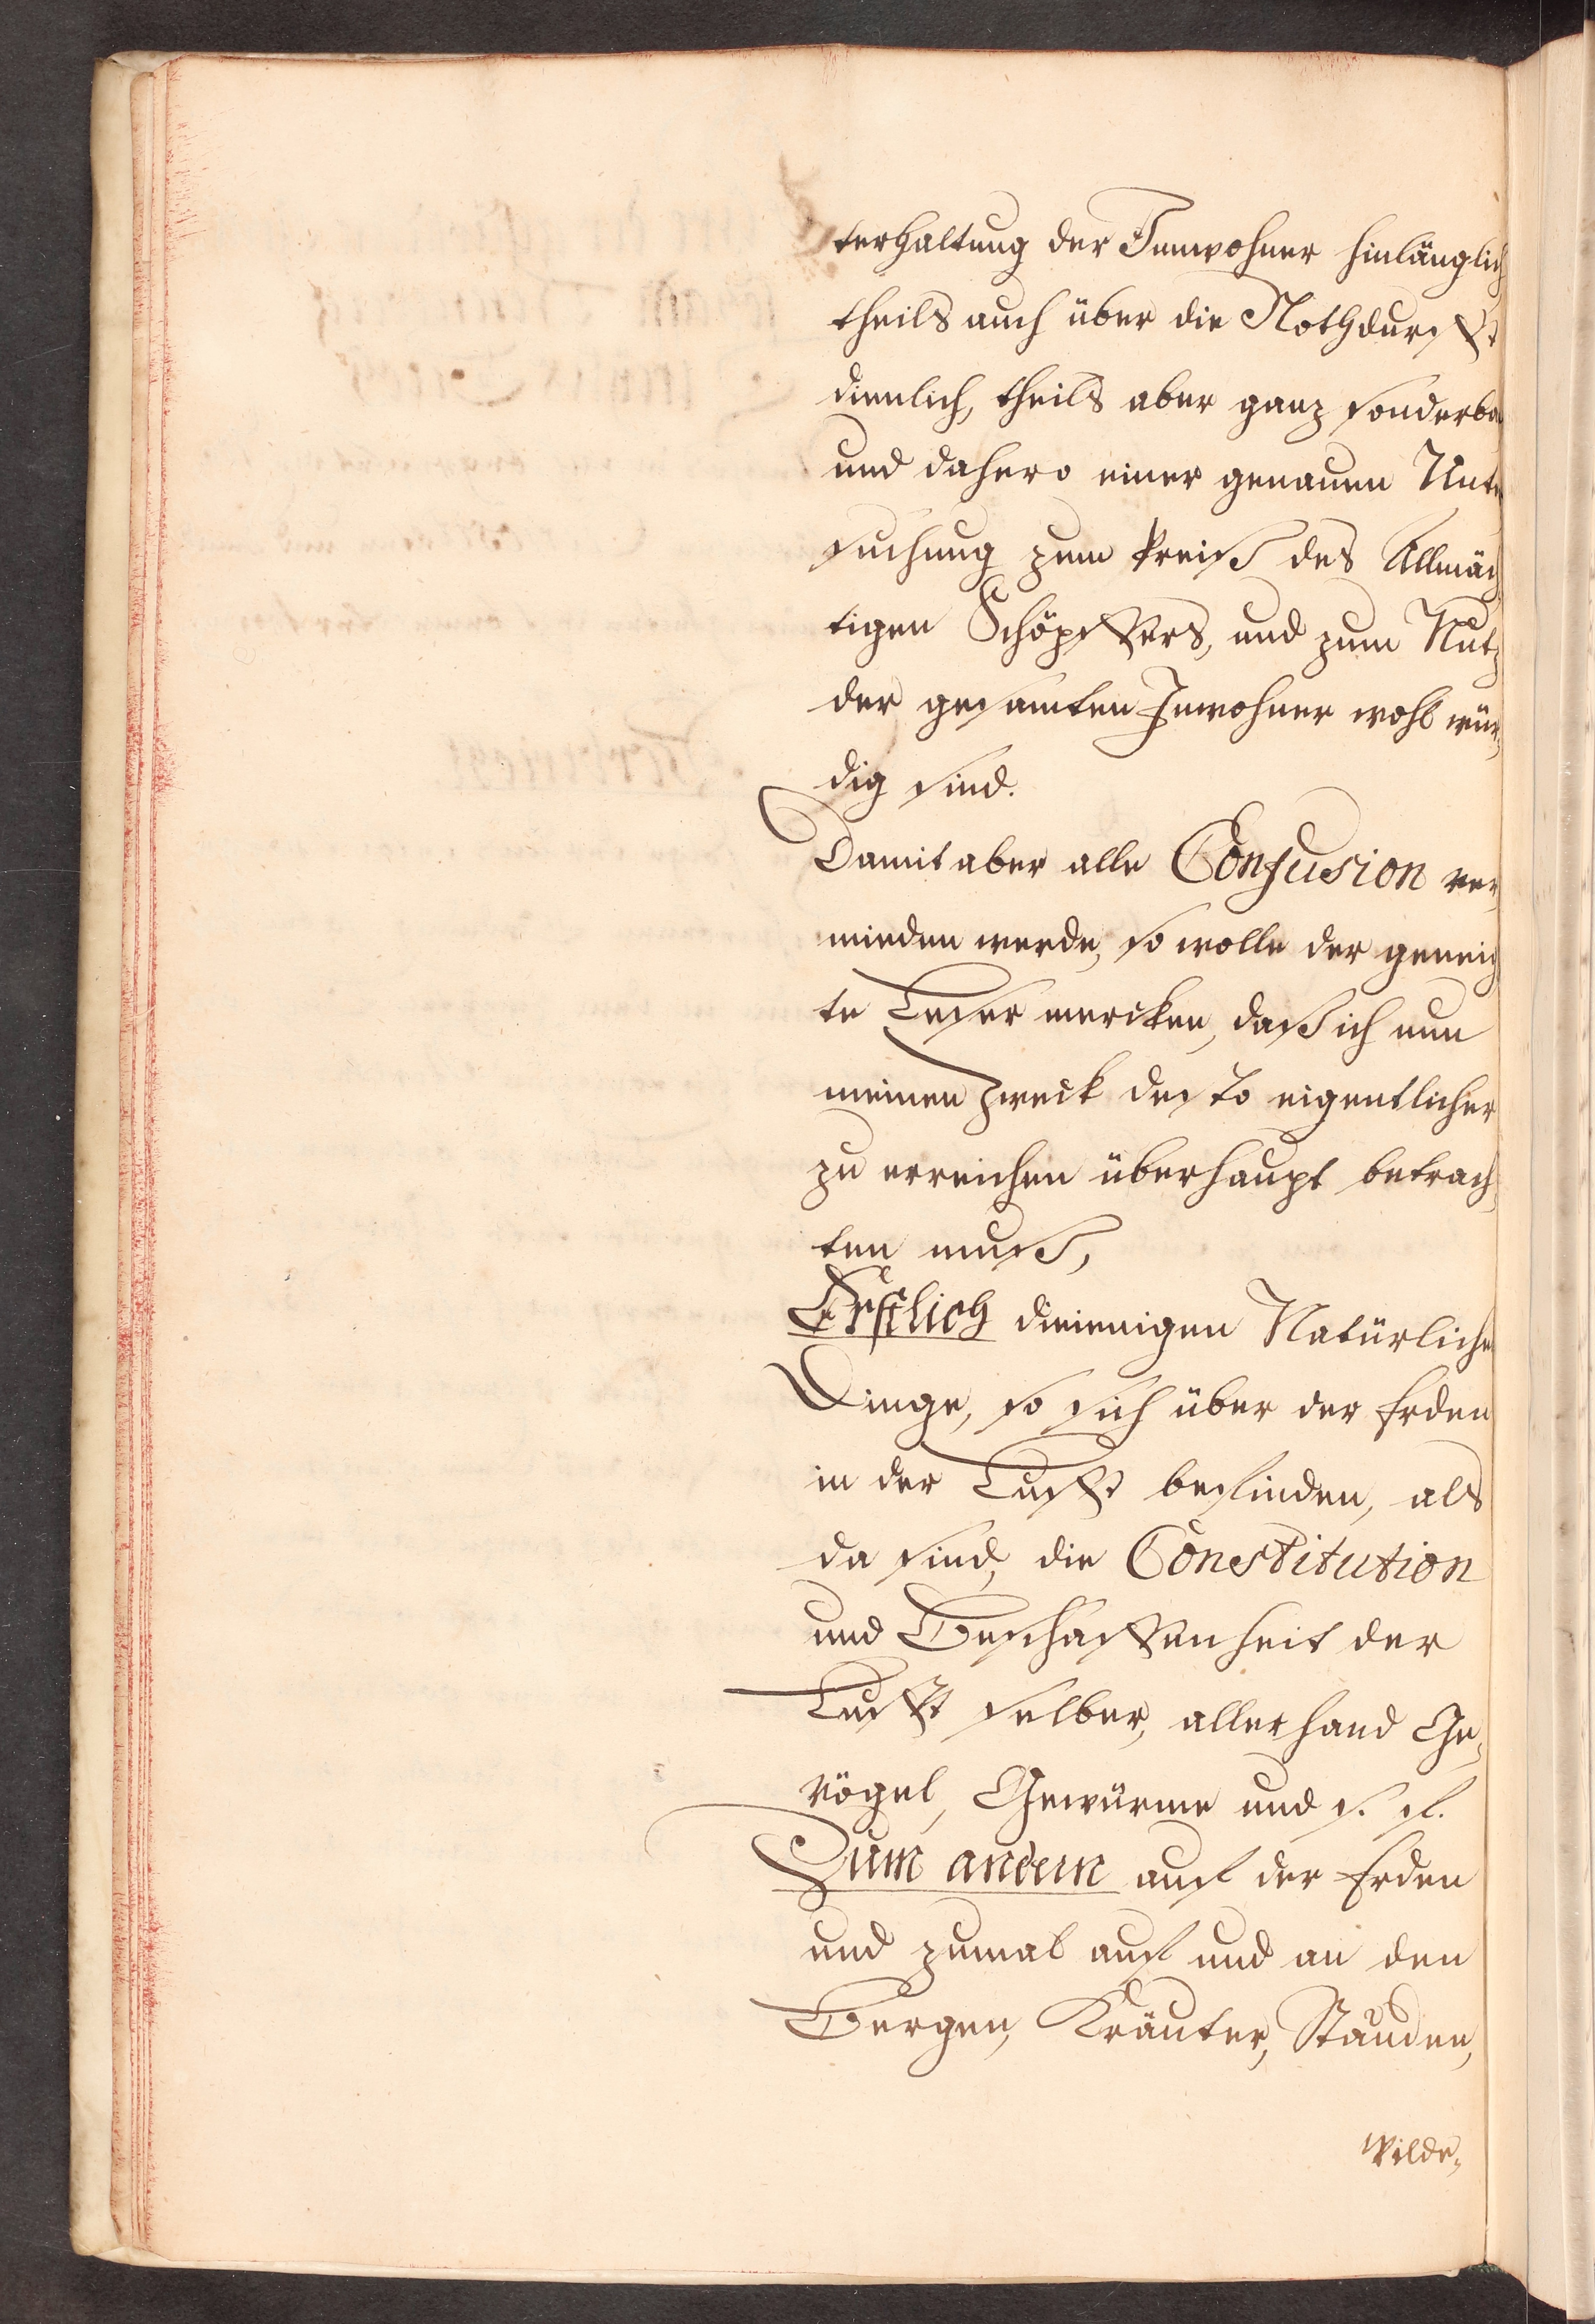 terhaltung der Innwohner hinlänglich
theils auch über die Nothdurfft
dienlich, theils aber ganz sonderba
und dahero einer genauen Unte
suchung zum Preiß des Allmäch
tigen Schöpffers, und zum Nutz
der gesamten Inwohner wohl wür,
dig sind.
Damit aber alle Confusion ver,
mieden werde, so wolle der geneig
te Leser mercken, daß ich nun
meinen Zweck desto eigentlicher
zu erreichen überhaupt betrach,
ten muß,
Erstlich dieienigen Natürliche
Dinge, so sich über der Erden
in der Lufft befinden, als
da sind, die Constitution
und Beschaffenheit der
Lufft selber, allerhand Ge,
vögel, Gewürme und s. f.
Zum andern auf der Erden
und zumal auf und an den
Bergen, Kräuter, Stauden,
Wilde,